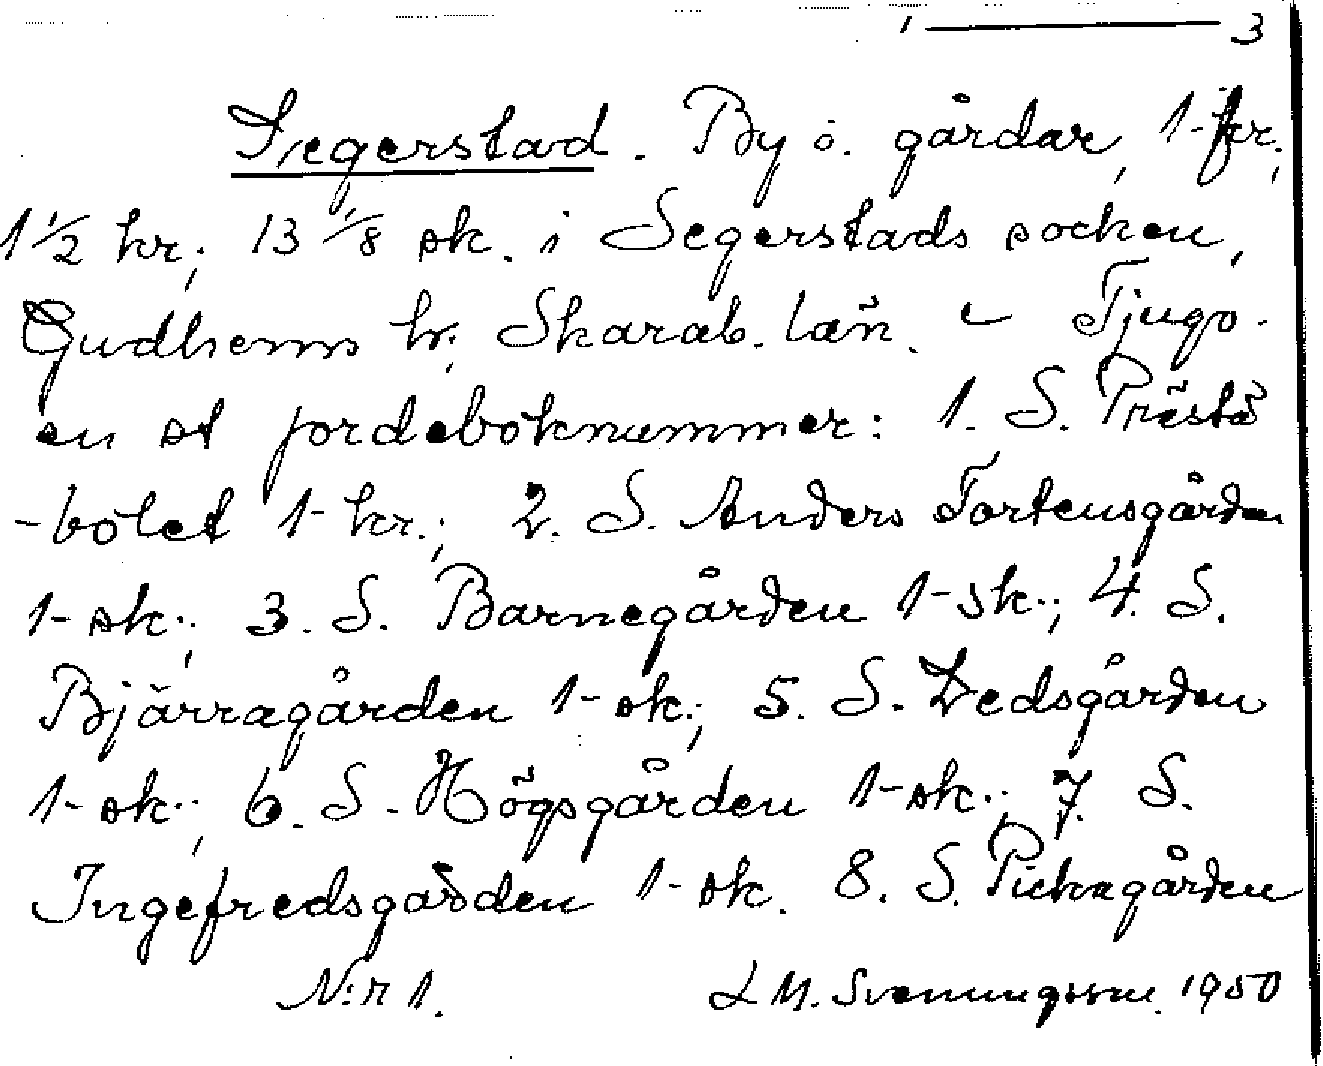 1 ——— 3
Segerstad. By o. gårdar, 1 fr,
1 1/2 kr; 13 1/8 sk. i Segerstads socken,
Gudhems hr, Skarab. län. Tjugo-
en st jordeboknummer: 1. S. Prästa
-bolet 1 kr.; 2. S. Anders Torstensgården
1 sk.; 3. S. Barnegården 1 sk.; 4. S.
Bjärragården 1 sk.; 5. S. Dedsgården
1 sk.; 6. S. Högsgården 1 sk.; 7. S.
Ingefredsgården 1 sk. 8. S. Pickagården
N:r 1. L M. Svenungsson. 1950